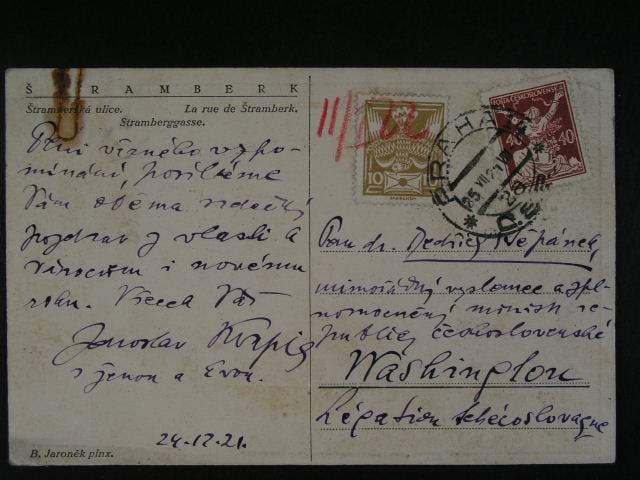 ŠTRAMBERK
Štramberská ulice. La rue de Štramberk.
Stramberggasse.
vzpo-
mínání, posíláme
Vám oběma srdečný
pozdrav z vlasti k
vánocům i novému
roku. Všecek Váš
Jaroslav
s ženou a Evou.
24.12.21.
B. Jaroněk pinx.
11/
10
40 40
PRAHA
Pan dr. Bedřich Štěpánek,
mimořádný vyslanec a zpl-
nomocněný ministr re-
publiky československé
Washington
Légation tchécoslovaque